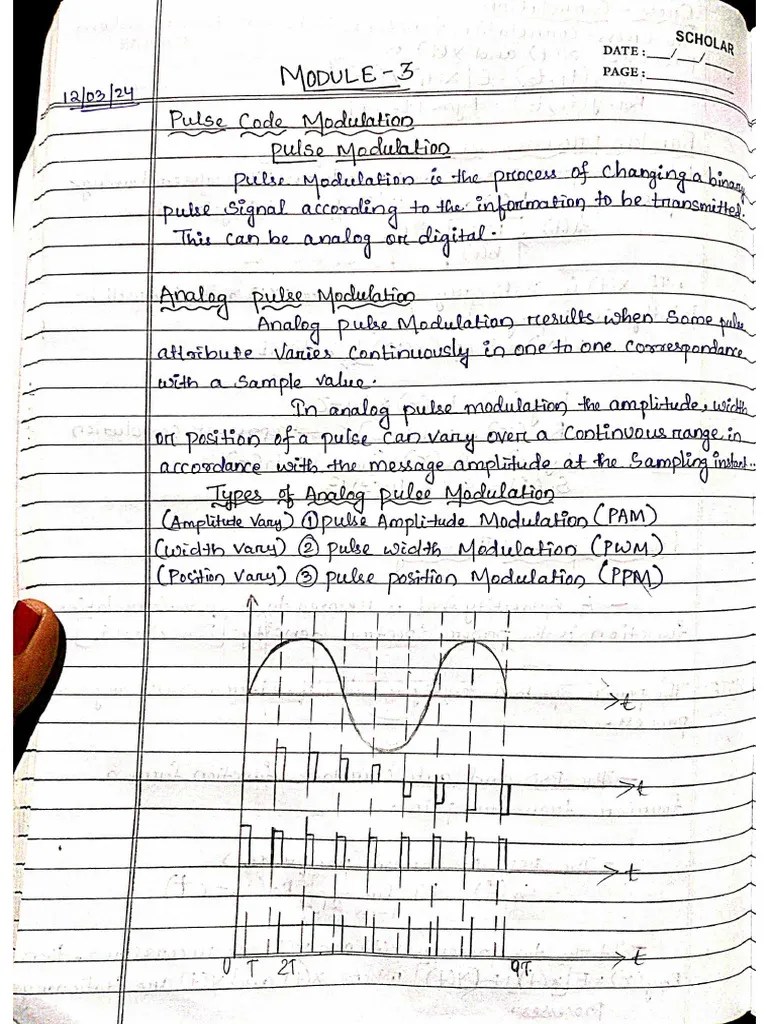 SCHOLAR
DATE: __/__/__
PAGE: ______
MODULE-3
12/03/24
Pulse Code Modulation
pulse Modulation
pulse Modulation is the process of changing a binary
pulse signal according to the information to be transmitted.
This can be analog or digital.
Analog pulse Modulation
Analog pulse Modulation results when some pulse
attribute varies continuously in one to one correspondance
with a sample value.
In analog pulse modulation the amplitude, width
or position of a pulse can vary over a continuous range in
accordance with the message amplitude at the sampling instant..
Types of Analog pulse Modulation
(Amplitude vary) ① pulse Amplitude Modulation (PAM)
(width vary) ② pulse width Modulation (PWM)
(Position vary) ③ pulse position Modulation (PPM)
t
t
t
t
0 T 2T 9T